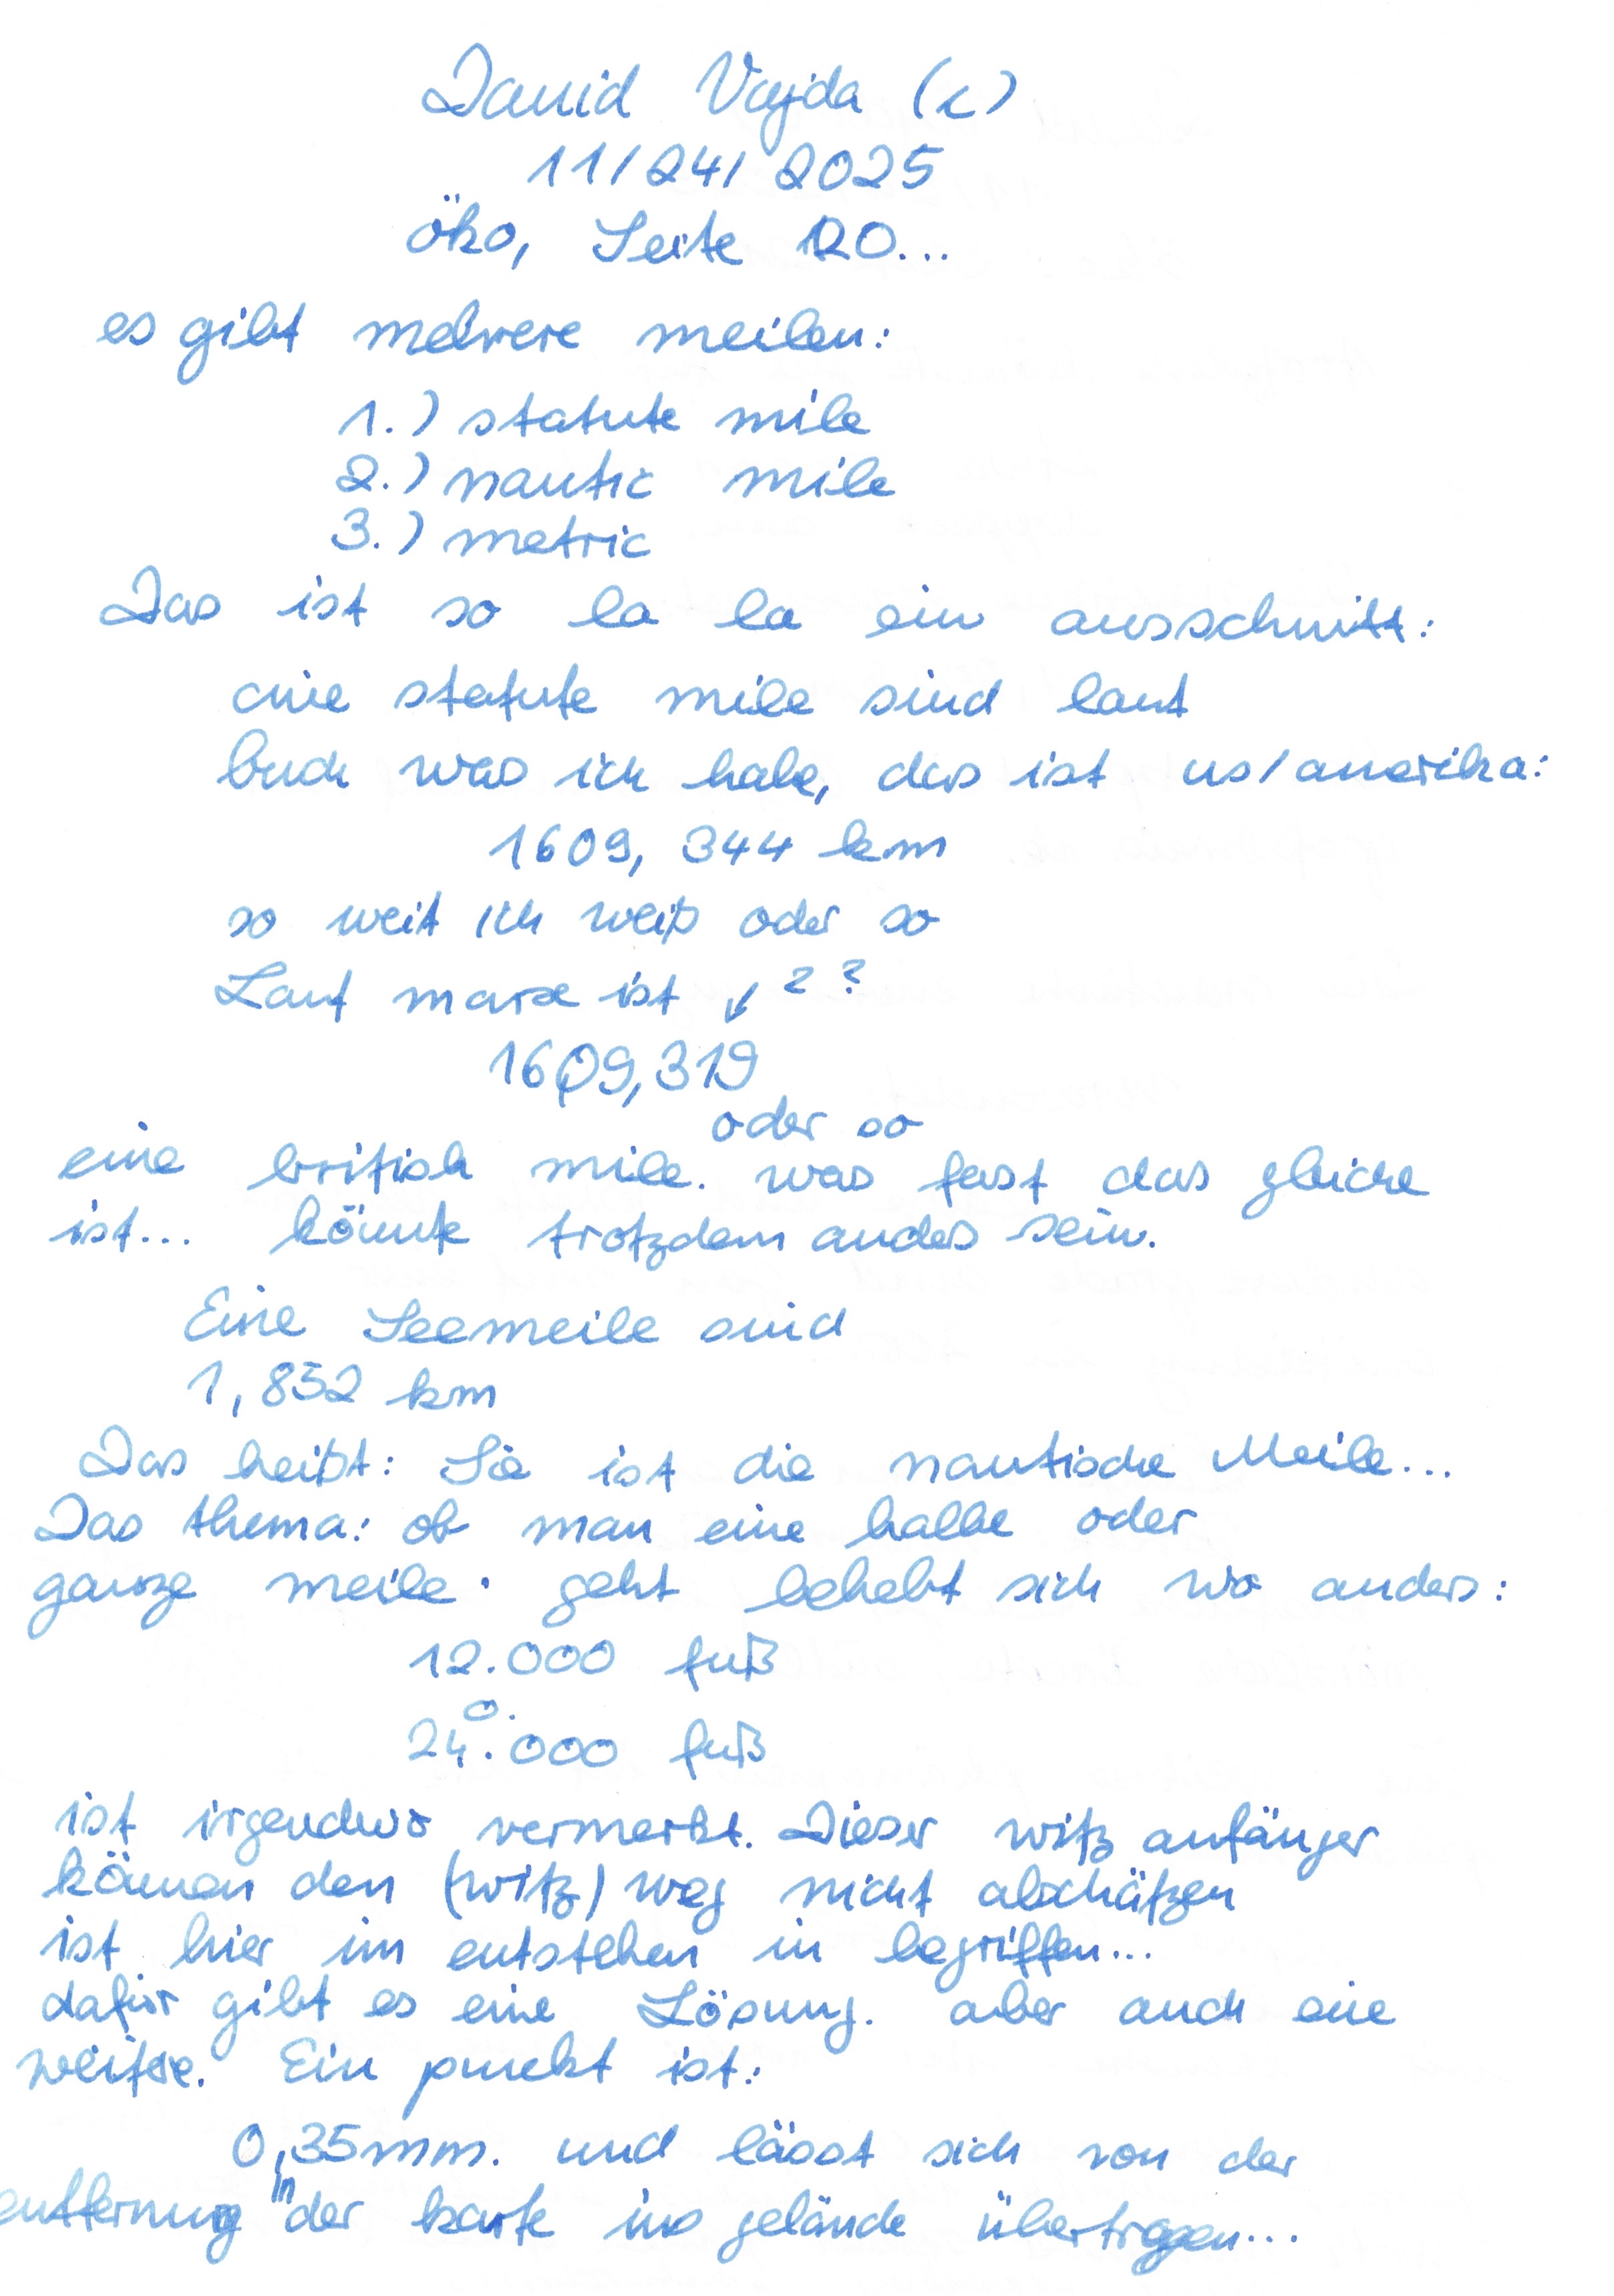 David Vajda (c)
11/24/2025
öko, Seite 120...
es gibt mehrere meilen:
1.) statute mile
2.) nautic mile
3.) metric
Das ist so la la ein ausschnitt:
eine statute mile sind laut
buch was ich habe, das ist us/amerika:
1609, 344 km
so weit ich weiß oder so
Laut marx ist ↙ ? ?
1609,319
oder so
eine british mile. was fast das gleiche
ist... könnte trotzdem anders sein.
Eine Seemeile sind
1,852 km
Das heißt: Sie ist die nautische Meile...
Das thema: ob man eine halbe oder
ganze meile. geht behebt sich wo anders:
12.000 fuß
24.000 fuß
ist irgendwo vermerkt. Dieser witz anfänger
können den (witz) weg nicht abschätzen
ist hier im entstehen in begriffen...
dafür gibt es eine Lösung. aber auch eine
weitere. Ein punkt ist:
0,35mm. und lässt sich von der
entfernung in der karte ins gelände übertragen...